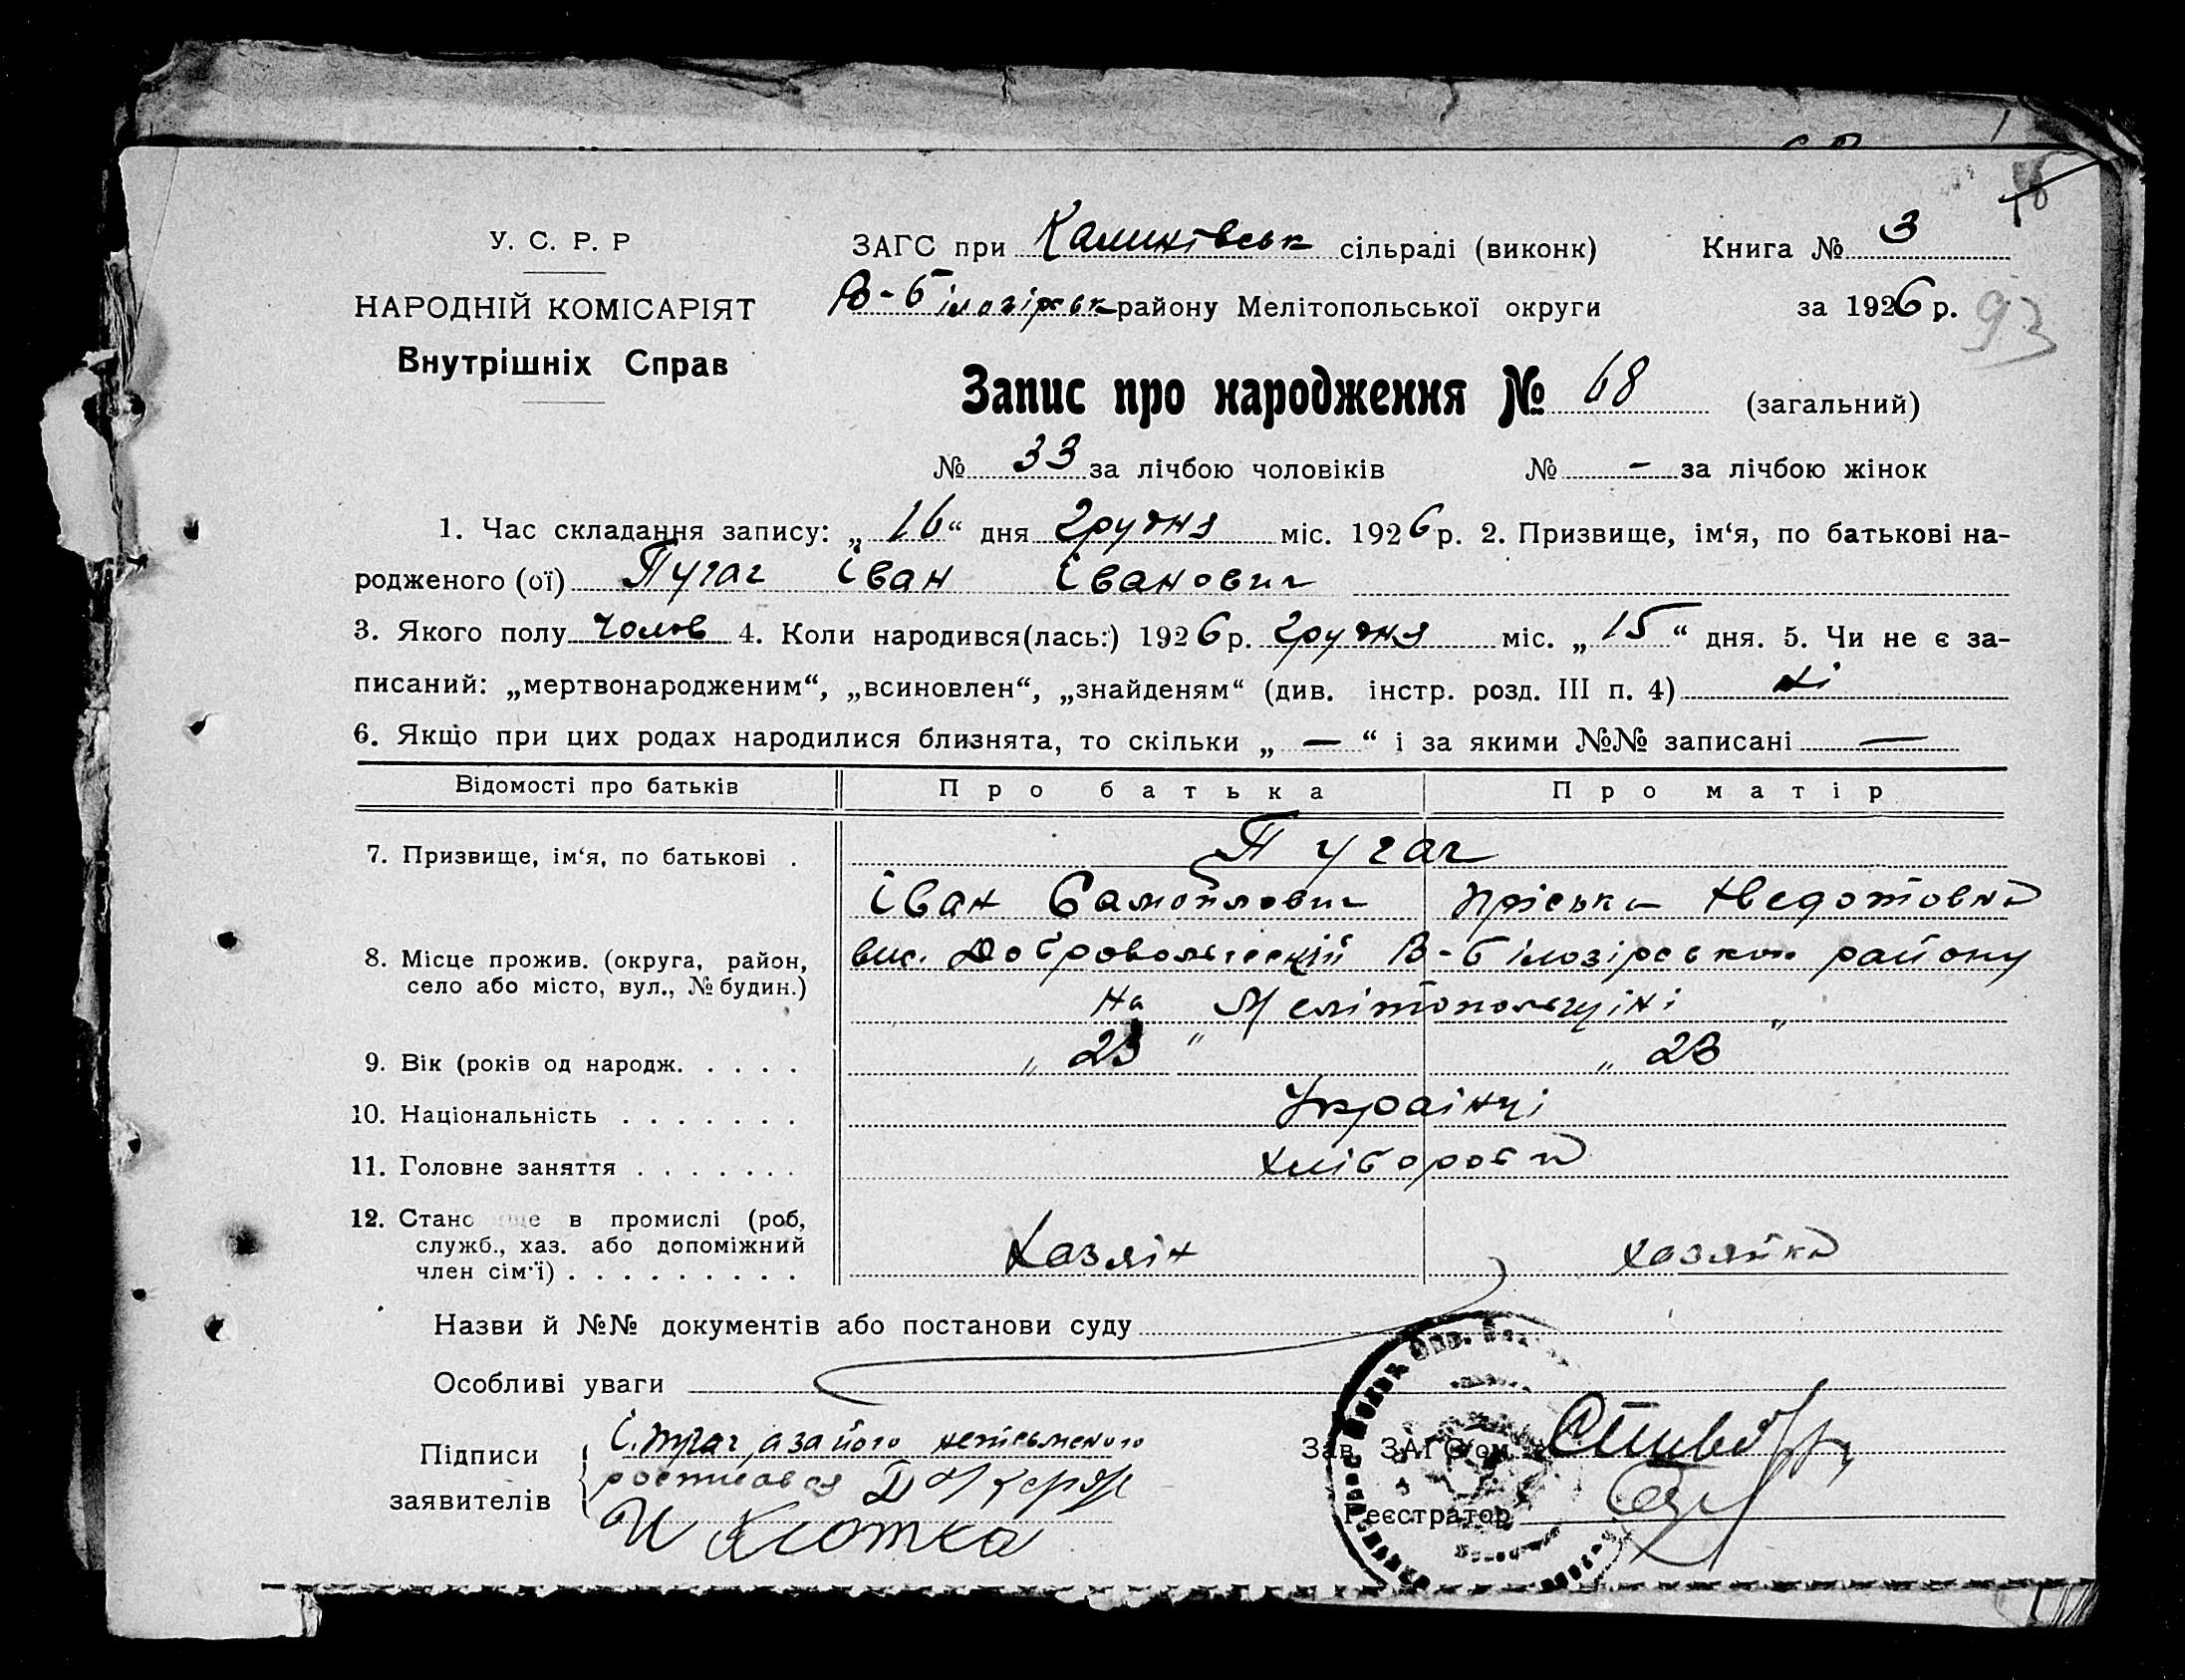 У. С. Р. Р
НАРОДНІЙ КОМІСАРІЯТ
Внутрішніх Справ
ЗАГС при Калинівськ сільраді (виконк) Книга № 3
В-Білозірськ району Мелітопольської округи за 1926 р.
93
Запис про народження № 68 (загальний)
№ 33 за лічбою чоловіків № - за лічбою жінок
1. Час складання запису: „16“ дня грудня міс. 1926 р. 2. Призвище, ім‘я, по батькові на-
родженого (ої) Пугач Іван Іванович
3. Якого полу чолов 4. Коли народився(лась:) 1926 р. грудня міс. „15“ дня. 5. Чи не є за-
писаний: „мертвонародженим“, „всиновлен“, „знайденям“ (див. інстр. розд. III п. 4) ні
6. Якщо при цих родах народилися близнята, то скільки „—“ і за якими №№ записані —
Відомості про батьків Про батька Про матір
7. Призвище, ім‘я, по батькові . Пугач
Іван Самойлович Пріська Федотовна
8. Місце прожив. (округа, район, село або місто, вул., № будин.) вис. В-Білозірського району
на Мелітопольщині
9. Вік (років од народж. . . . . „ 23 " „ 23 "
10. Національність . . . . . . . Українці
11. Головне заняття . . . . . . . хлібороби
12. Стано ще в промислі (роб,
служб., хаз. або допоміжний
член сім‘ї) . . . . . . . . . Хазяін хазяйка
Назви й №№ документів або постанови суду
Особливі уваги
Підписи І. Пугач, а за його неписьменого
заявителів росписався
И Клотка
Зав. ЗАГС‘ом
Реєстратор